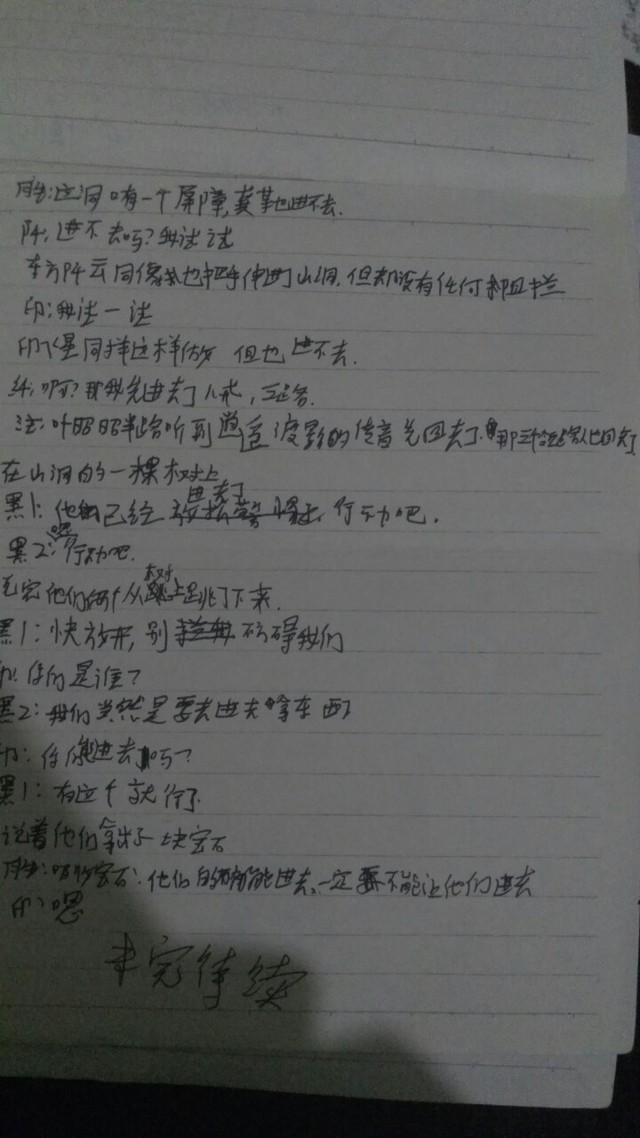 这洞口有一个屏障,莫某也进不去.
进不去吗?我试试
东方阡云同像我也把手伸进了山洞,但却没有任何阻拦
印:我试一试
印 同样这样做 但也进不去.
啊?那我先进去了
注:叶昭昭半路听到逍遥 的传音先回去了.
在山洞的一棵树上
黑1:他们已经进去了,行动吧.
黑2:嗯 行动吧.
说完他们俩个从树上跳了下来.
黑1:快放开,别 碍我们
印:你们是谁?
黑2:我们当然是要去进去拿东西了
印:你们能进去吗?
黑1:有这个就行了
说着他们拿出了一块宝石
宝石:他们 能进去,一定要不能让他们进去
印:嗯
未完待续